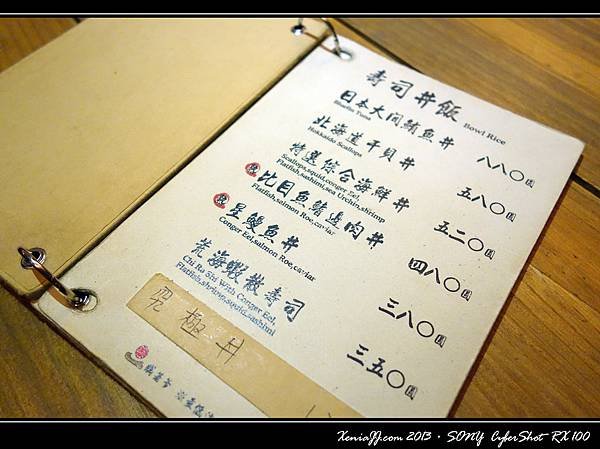 壽司丼飯
Bowl Rice
日本大间鮪魚丼 八八〇圓
Bluefin Tuna
北海道干貝丼 五八〇圓
Hokkaido Scallops
特選綜合海鮮丼 五二〇圓
Scallops,squid,conger Eel,
Flatfish,sashimi,sea Urchin,shrimp
比目魚鰭边肉丼 四八〇圓
Flatfish,salmon Roe,caviar
星鰻魚丼 三八〇圓
Conger Eel,salmon Roe,caviar
荒海蝦散壽司 三五〇圓
Chi Ra Shi With Conger Eel,
Flatfish,shrimp,squid,sashimi
究極丼
XeniaJJ.com 2013 · SONY CyberShot RX100